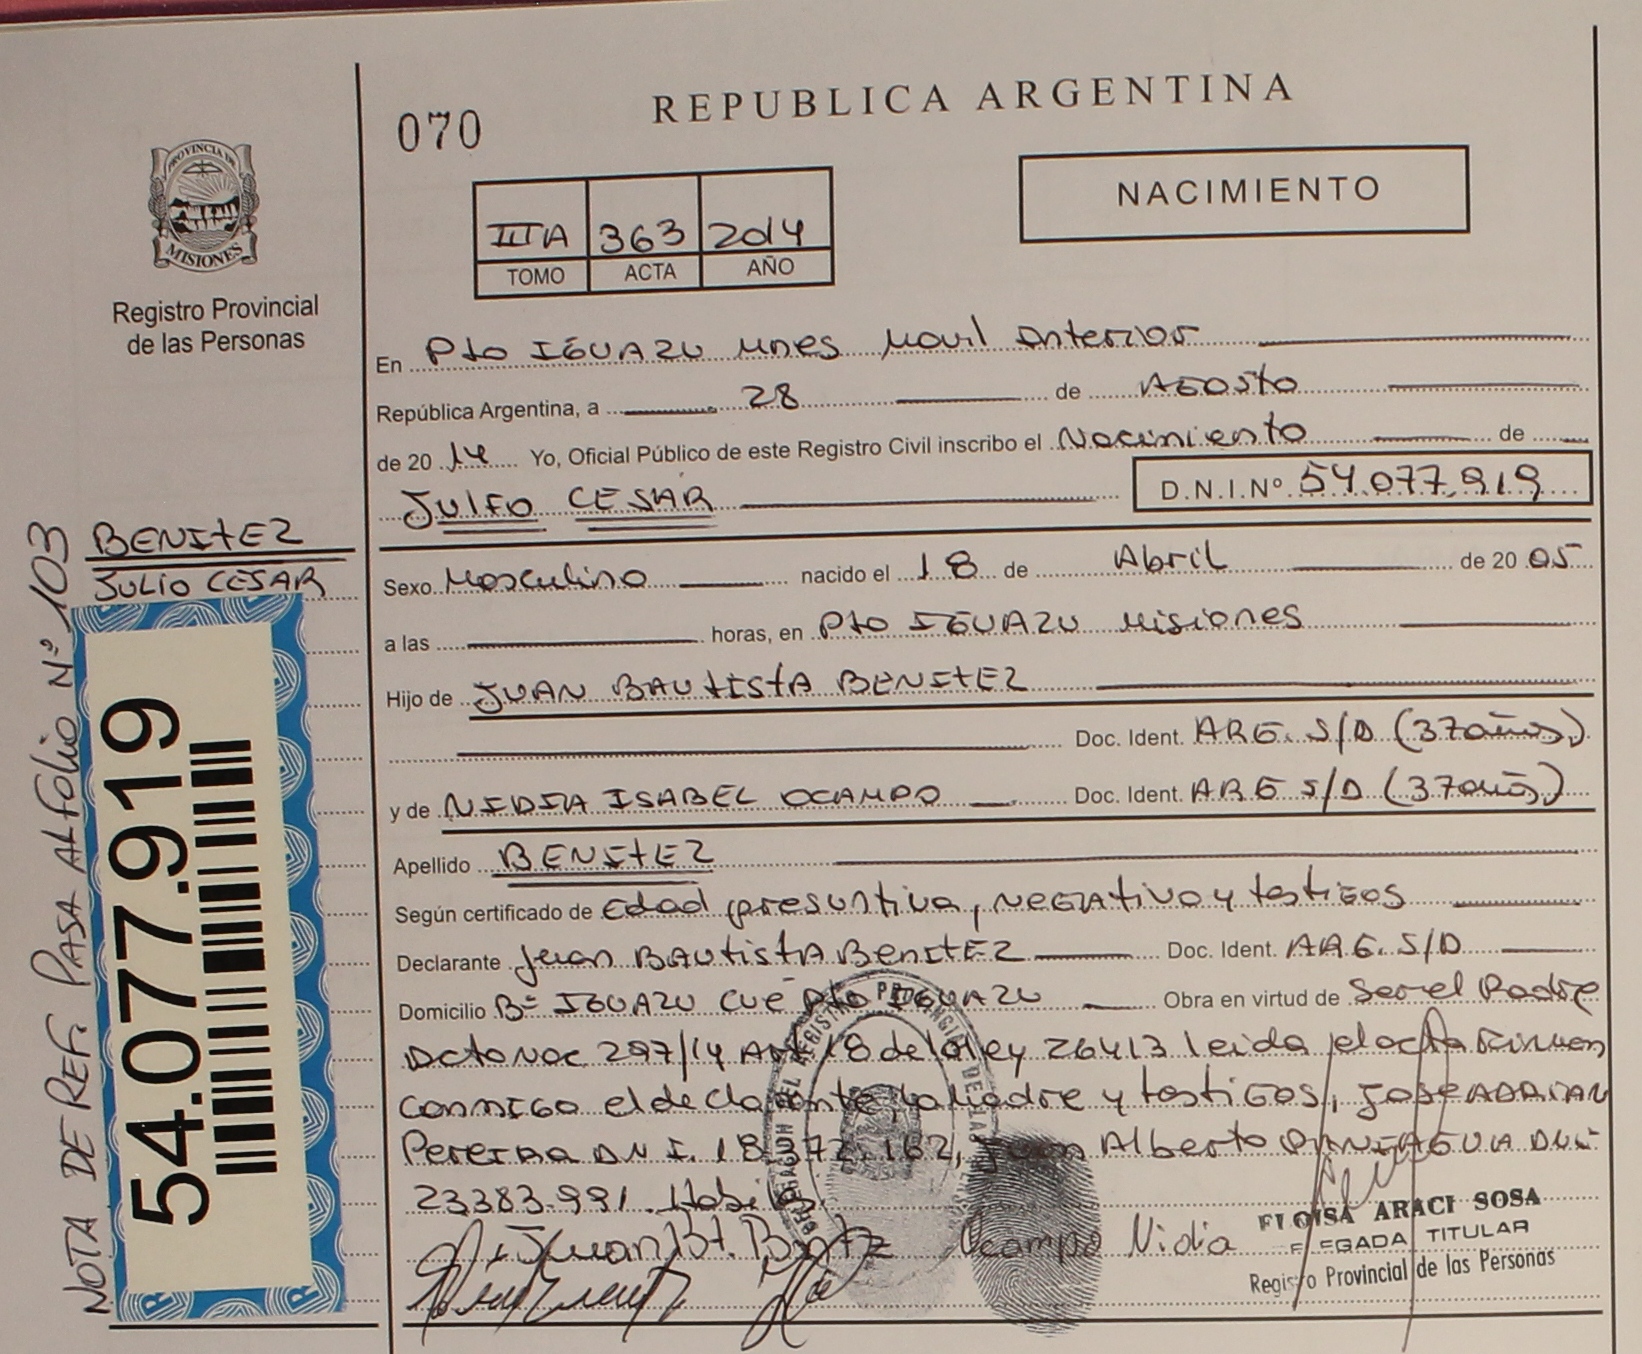 REPUBLICA ARGENTINA
070
NACIMIENTO
IIIA 363 2014
TOMO ACTA AÑO
PROVINCIA DE
MISIONES
Registro Provincial
de las Personas
En Pto IGUAZU Mnes Movil Interior
República Argentina, a 28 de AGOSTO
de 20 14 Yo, Oficial Público de este Registro Civil inscribo el Nacimiento de
JULIO CESAR D.N.I.Nº 54.077.919
BENITEZ
JULIO CESAR
Sexo Masculino nacido el 18 de Abril de 20 05
a las horas, en Pto IGUAZU Misiones
Hijo de JUAN BAUTISTA BENITEZ
Doc. Ident. ARG. S/D (37 años)
y de NIDIA ISABEL OCAMPO Doc. Ident. ARG S/D (37 años)
Apellido BENITEZ
Según certificado de Edad presuntiva, NEGATIVO y testigos
Declarante Juan BAUTISTA BENITEZ Doc. Ident. ARG. S/D
Domicilio Bº IGUAZU CUE Pto IGUAZU Obra en virtud de Ser el Padre
Acta Nac 297/14 Art 18 de la ley 26413 leida el acta Firman
conmigo el declarante, la Madre y testigos, JOSE ADRIAN
Pereira D.N.I. 18.372.162, Juan Alberto PANIAGUA DNI
23.383.991. Habil
Juan Bt. Bntz Ocampo Nidia
ELOISA ARACI SOSA
DELEGADA TITULAR
Registro Provincial de las Personas
NOTA DE REF. PASA AL FOLIO Nº 103
54.077.919